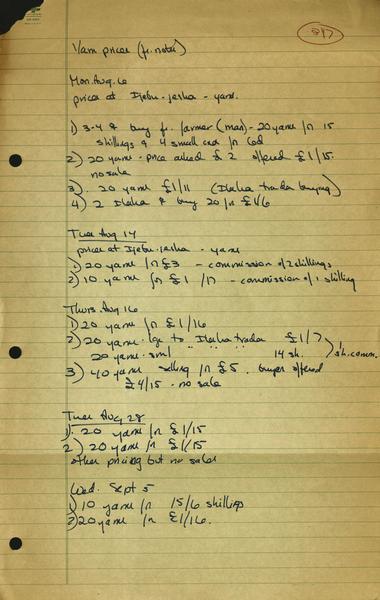 317
Yam prices (fr. notes)
Mon. Aug. 6
prices at Ijebu-jesha - yams.
1) 3-4 ♀ buy fr. farmer (man) - 20 yams for 15
shillings & 4 small ones for 6d
2) 20 yams - price asked £2 offered £1/15.
no sale
3) 20 yams £1/11 (Ilesha trader buying)
4) 2 Ilesha ♀ buy 20 for £1/6
Tues Aug 14
prices at Ijebu-jesha - yams
1) 20 yams for £3 - commission of 2 shillings
2) 10 yams for £1/17 - commission of 1 shilling
Thurs. Aug 16
1) 20 yams for £1/16
2) 20 yams - lge to Ilesha trader £1/7
20 yams - sml " " " 14 sh. 1 sh. comm.
3) 40 yams selling for £5. buyer offered
£4/15 - no sale
Tues Aug 28
1) 20 yams for £1/15
2) 20 yams for £1/15
other pricing but no sales
Wed. Sept 5
1) 10 yams for 15/6 shillings
2) 20 yams for £1/16.